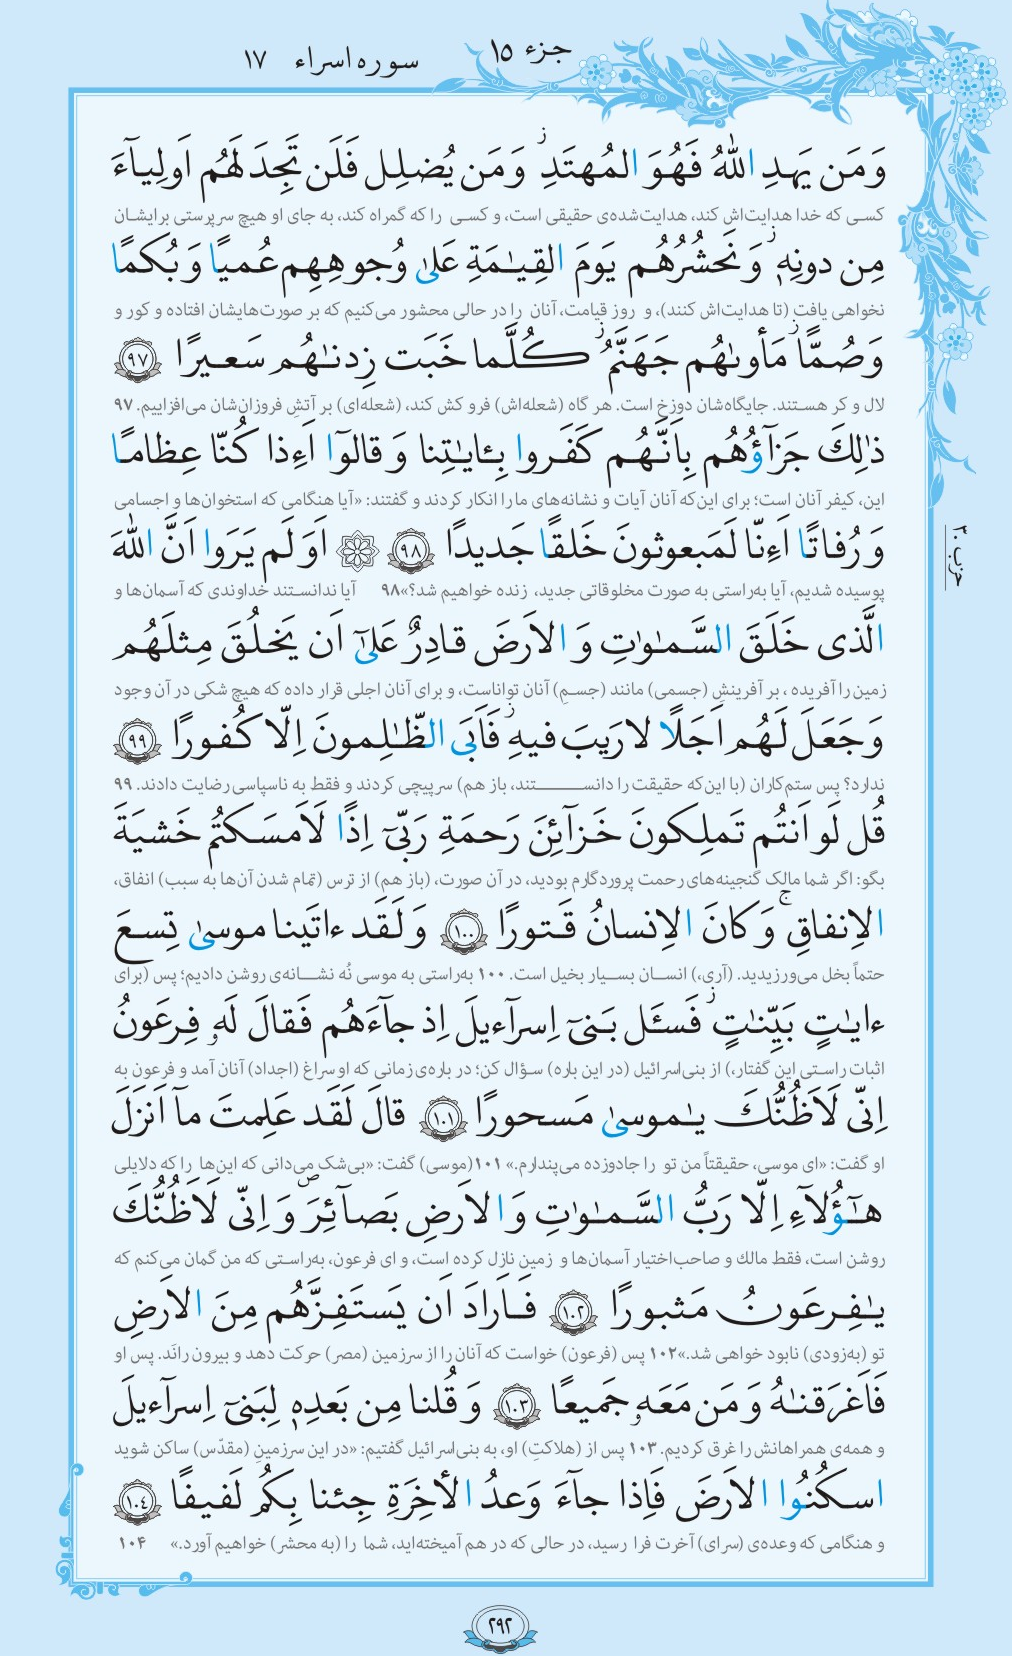 جزء ۱۵
سوره اسراء ۱۷
وَ مَن يَهدِ اللّٰهُ فَهُوَ المُهتَدِ ز وَ مَن يُضلِل فَلَن تَجِدَ لَهُم اَولِيآءَ
کسی که خدا هدایت‌اش کند، هدایت‌شده‌ی حقیقی است، و کسی را که گمراه کند، به جای او هیچ سرپرستی برایشان
مِن دونِهٖ ز وَ نَحشُرُهُم يَومَ القِيـٰمَةِ عَلىٰ وُجوهِهِم عُميًا وَ بُكمًا
نخواهی یافت (تا هدایت‌اش کنند)، و روز قیامت، آنان را در حالی محشور می‌کنیم که بر صورت‌هایشان افتاده و کور و
وَ صُمًّا ز مَأوىٰهُم جَهَنَّمُ ز كُلَّما خَبَت زِدنـٰهُم سَعيرًا ۹۷
لال و کر هستند. جایگاه‌شان دوزخ است. هر گاه (شعله‌اش) فروکش کند، (شعله‌ای) بر آتشِ فروزان‌شان می‌افزاییم. ۹۷
ذٰلِكَ جَزآؤُهُم بِاَنَّهُم كَفَروا بِـٔايـٰتِنا وَ قالوٓا اَءِذا كُنّا عِظامًا
این، کیفر آنان است؛ برای این‌که آنان آیات و نشانه‌های ما را انکار کردند و گفتند: «آیا هنگامی که استخوان‌ها و اجسامی
وَ رُفاتًا اَءِنّا لَمَبعوثونَ خَلقًا جَديدًا ۹۸ اَوَ لَم يَرَوا اَنَّ اللّٰهَ
پوسیده شدیم، آیا به‌راستی به صورت مخلوقاتی جدید، زنده خواهیم شد؟» ۹۸ آیا ندانستند خداوندی که آسمان‌ها و
الَّذى خَلَقَ السَّمـٰوٰتِ وَ الاَرضَ قادِرٌ عَلىٰٓ اَن يَخلُقَ مِثلَهُم
زمین را آفریده، بر آفرینشِ (جسمی) مانند (جسمِ) آنان تواناست، و برای آنان اجلی قرار داده که هیچ شکی در آن وجود
وَ جَعَلَ لَهُم اَجَلًا لا رَيبَ فيهِ ز فَاَبَى الظّـٰلِمونَ اِلّا كُفورًا ۹۹
ندارد؟ پس ستم‌کاران (با این‌که حقیقت را دانستند، باز هم) سرپیچی کردند و فقط به ناسپاسی رضایت دادند. ۹۹
قُل لَو اَنتُم تَملِكونَ خَزآئِنَ رَحمَةِ رَبّىٓ اِذًا لَاَمسَكتُم خَشيَةَ
بگو: اگر شما مالک گنجینه‌های رحمت پروردگارم بودید، در آن صورت، (باز هم) از ترس (تمام شدن آن‌ها به سبب) انفاق،
الاِنفاقِ ج وَ كانَ الاِنسانُ قَتورًا ۱۰۰ وَ لَقَد ءاتَينا موسىٰ تِسعَ
حتماً بخل می‌ورزیدید. (آری،) انسان بسیار بخیل است. ۱۰۰ به‌راستی به موسی نُه نشانه‌ی روشن دادیم؛ پس (برای
ءايـٰتٍ بَيِّنـٰتٍ ز فَسـَٔل بَنىٓ اِسرآءيلَ اِذ جآءَهُم فَقالَ لَهٗ فِرعَونُ
اثبات راستی این گفتار،) از بنی‌اسرائیل (در این باره) سؤال کن؛ درباره‌ی زمانی که او سراغ (اجداد) آنان آمد و فرعون به
اِنّى لَاَظُنُّكَ يـٰموسىٰ مَسحورًا ۱۰۱ قالَ لَقَد عَلِمتَ مآ اَنزَلَ
او گفت: «ای موسی، حقیقتاً من تو را جادوزده می‌پندارم.» ۱۰۱ (موسی) گفت: «بی‌شک می‌دانی که این‌ها را که دلایلی
هـٰٓؤُلآءِ اِلّا رَبُّ السَّمـٰوٰتِ وَ الاَرضِ بَصآئِرَ ص وَ اِنّى لَاَظُنُّكَ
روشن است، فقط مالک و صاحب‌اختیار آسمان‌ها و زمین نازل کرده است، و ای فرعون، به‌راستی که من گمان می‌کنم که
يـٰفِرعَونُ مَثبورًا ۱۰۲ فَاَرادَ اَن يَستَفِزَّهُم مِنَ الاَرضِ
تو (به‌زودی) نابود خواهی شد.» ۱۰۲ پس (فرعون) خواست که آنان را از سرزمین (مصر) حرکت دهد و بیرون رانَد. پس او
فَاَغرَقنـٰهُ وَ مَن مَعَهٗ جَميعًا ۱۰۳ وَ قُلنا مِن بَعدِهٖ لِبَنىٓ اِسرآءيلَ
و همه‌ی همراهانش را غرق کردیم. ۱۰۳ پس از (هلاکتِ) او، به بنی‌اسرائیل گفتیم: «در این سرزمینِ (مقدّس) ساکن شوید
اسكُنُوا الاَرضَ فَاِذا جآءَ وَعدُ الأٰخِرَةِ جِئنا بِكُم لَفيفًا ۱۰۴
و هنگامی که وعده‌ی (سرای) آخرت فرا رسید، در حالی که در هم آمیخته‌اید، شما را (به محشر) خواهیم آورد.» ۱۰۴
حزب ۳۰
۲۹۲